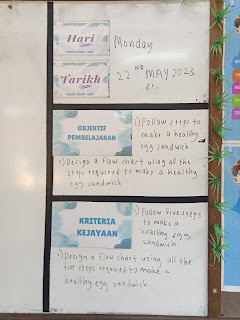 Hari
Monday
Tarikh
22ND MAY 2023
OBJEKTIF
PEMBELAJARAN
1) Follow steps to
make a healthy
egg sandwich
2) Design a flow chart using all the
steps required to make a healthy
egg sandwich
KRITERIA
KEJAYAAN
1) Follow five steps
to make a
healthy egg
sandwich
2) Design a flow chart using all the
five steps required to make a
healthy egg sandwich.